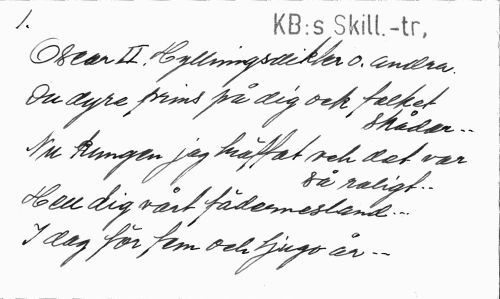 1.
KB:s Skill.-tr,
Oscar II. Hyllningsdikter o. andra.
Du dyre prins på dig och folket
skådar--
Nu Kungen jag träffat och det var
så roligt--
Heu dig vårt fädernesland--
I dag för fem och tjugo år--